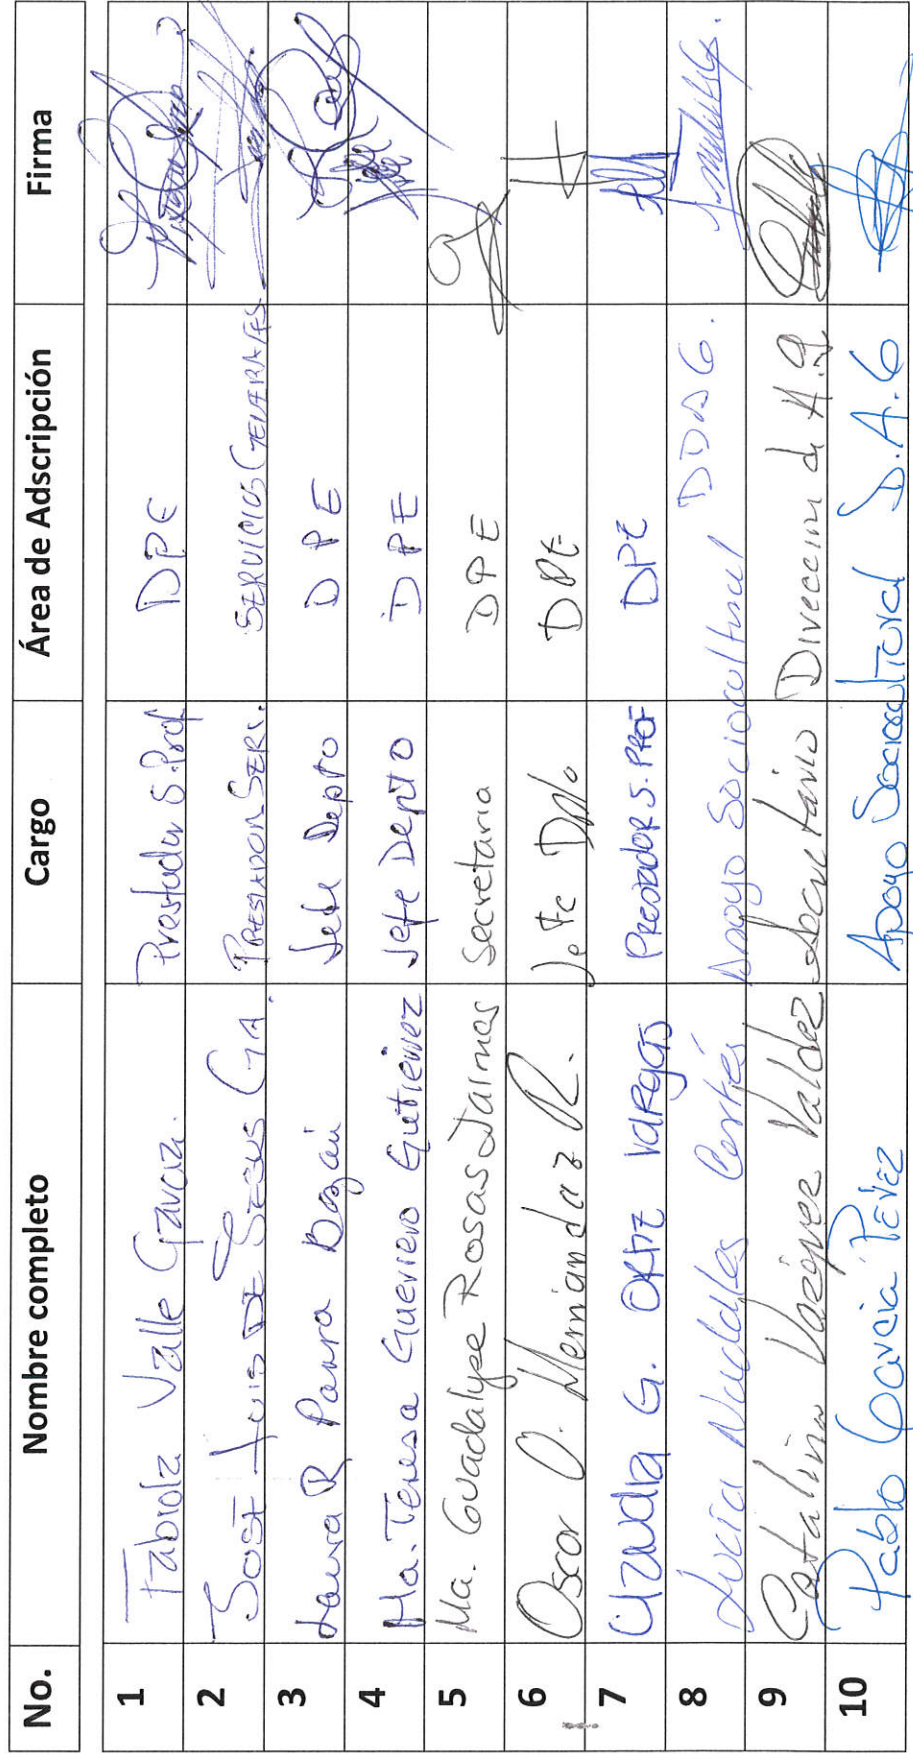 No. Nombre completo Cargo Área de Adscripción Firma
1 Fabiola Valle García. Prestador S. Prof DPE
2 JOSE LUIS DE JESUS GIA. PRESTADOR SERV. SERVICIOS GENERALES
3 Laura R Parra Bazán Jefe Depto DPE
4 Ma. Teresa Guerrero Gutiérrez Jefe Depto DPE
5 Ma. Guadalupe Rosas Jaimes Secretaria DPE
6 Oscar O. Hernandez R. Jefe Dpto DPE
7 G. ORTIZ VARGAS PRESTADOR S. PROF DPE
8 Lucía Cortés Apoyo Sociocultural
9 Catalina Vázquez Valdez Secretario Direccion de
10 Pablo García Pérez Apoyo Sociocultural D.A.G